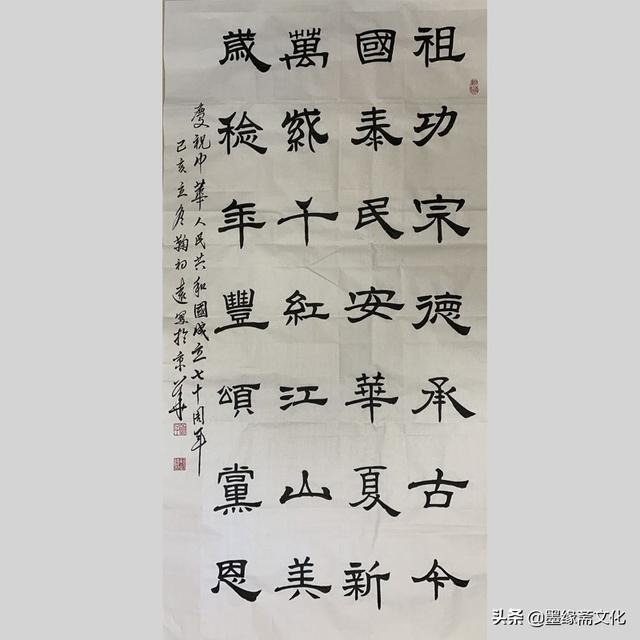 祖功宗德承古今
國泰民安華夏新
萬紫千紅江山美
歲稔年豐頌黨恩
慶祝中華人民共和國成立七十周年
己亥立冬鞠初遠寫於京華
头条 @墨缘斋文化